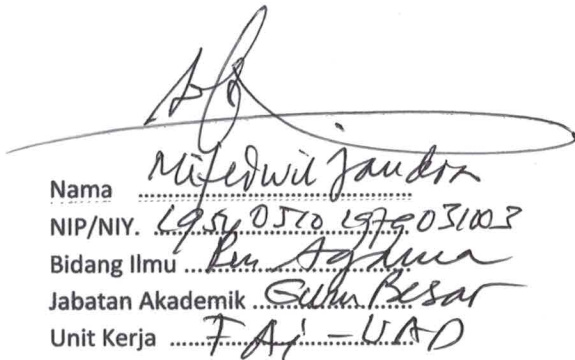 Nama Mifedwil Jandra
NIP/NIY. 19540510 1979031003
Bidang Ilmu Agama
Jabatan Akademik Guru Besar
Unit Kerja FAI - UAD